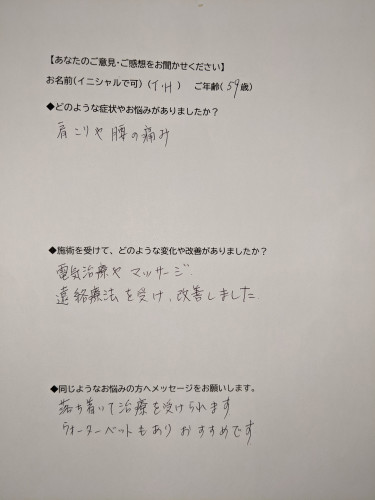 【あなたのご意見・ご感想をお聞かせください】
お名前(イニシャルで可)(イ.H) ご年齢(59歳)
◆どのような症状やお悩みがありましたか?
肩こりや腰の痛み
◆施術を受けて、どのような変化や改善がありましたか?
電気治療やマッサージ.
遠絡療法を受け、改善しました
◆同じようなお悩みの方へメッセージをお願いします。
落ち着いて治療を受けられます
ウォーターベットもありおすすめです